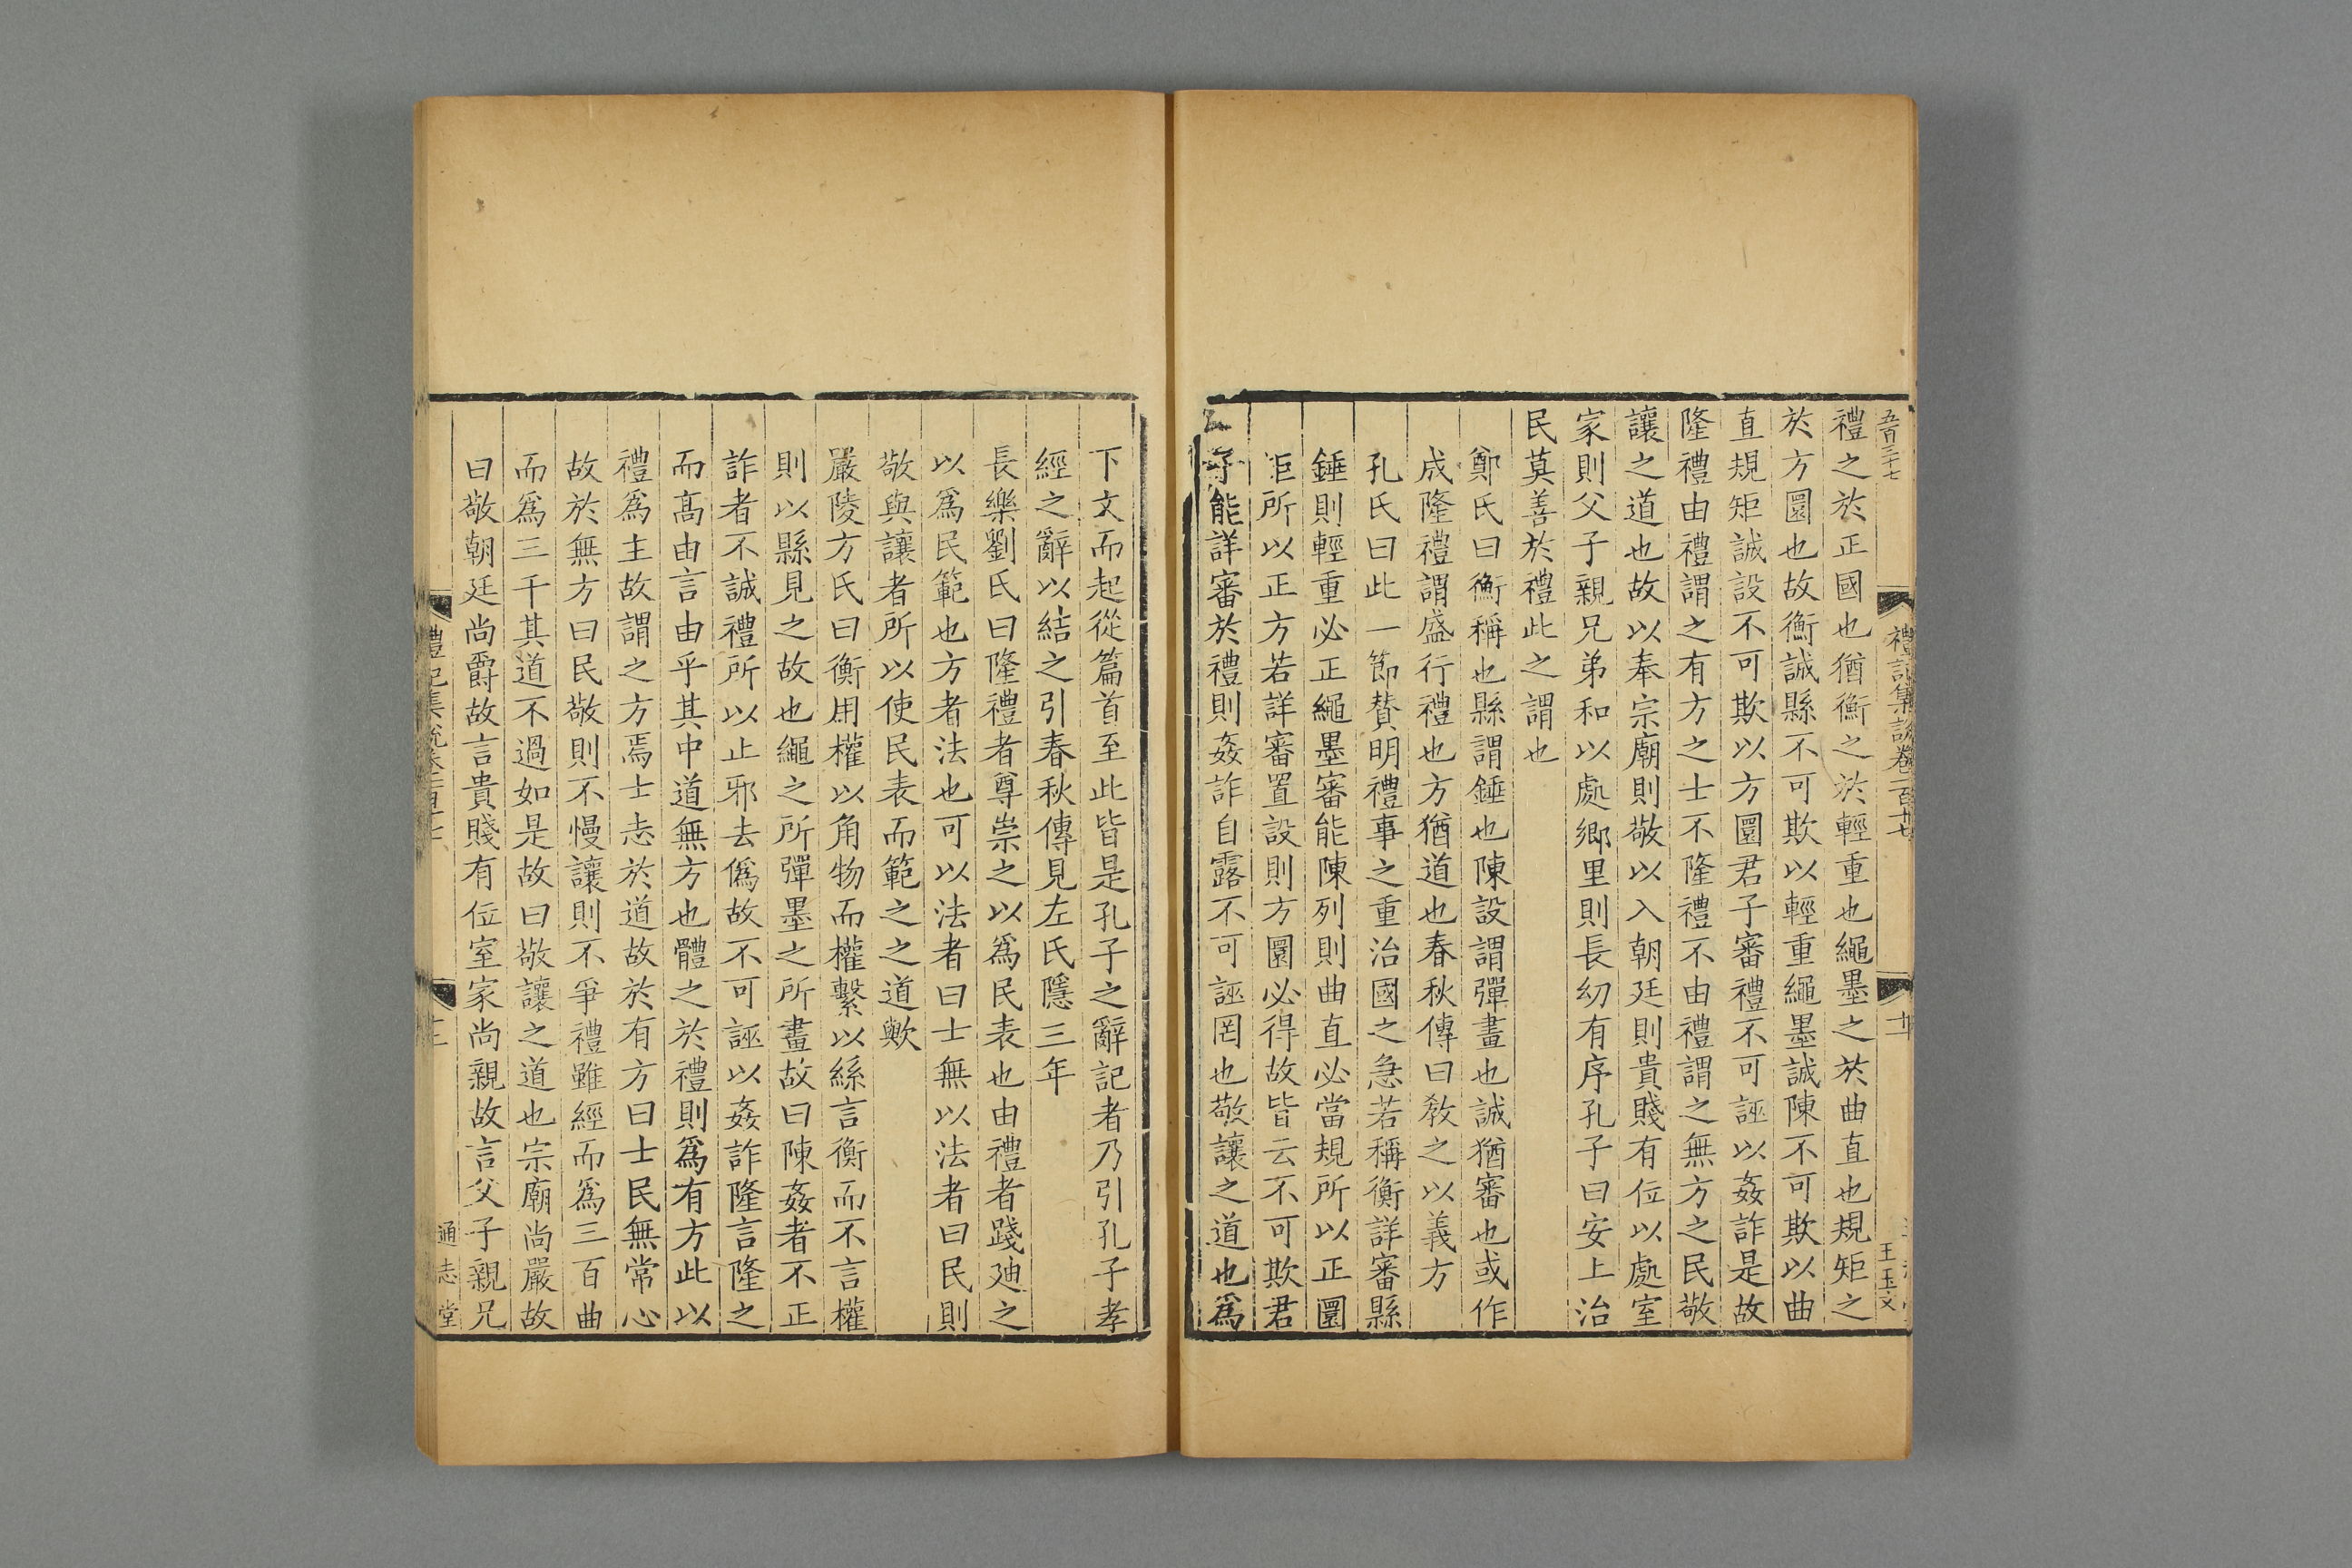 五百三十七
禮記集說卷一百十七
王玉文
禮之於正國也猶衡之於輕重也繩墨之於曲直也規矩之
於方圜也故衡誠縣不可欺以輕重繩墨誠陳不可欺以曲
直規矩誠設不可欺以方圜君子審禮不可誣以姦詐是故
隆禮由禮謂之有方之士不隆禮不由禮謂之無方之民敬
讓之道也故以奉宗廟則敬以入朝廷則貴賤有位以處室
家則父子親兄弟和以處鄉里則長幼有序孔子曰安上治
民莫善於禮此之謂也
鄭氏曰衡稱也縣謂錘也陳設謂彈畫也誠猶審也或作
成隆禮謂盛行禮也方猶道也春秋傳曰教之以義方
孔氏曰此一節賛明禮事之重治國之急若稱衡詳審縣
錘則輕重必正繩墨審能陳列則曲直必當規所以正圜
矩所以正方若詳審置設則方圜必得故皆云不可欺君
子能詳審於禮則姦詐自露不可誣罔也敬讓之道也爲
下文而起從篇首至此皆是孔子之辭記者乃引孔子孝
經之辭以結之引春秋傳見左氏隱三年
長樂劉氏曰隆禮者尊崇之以爲民表也由禮者踐廸之
以爲民範也方者法也可以法者曰士無以法者曰民則
敬與讓者所以使民表而範之之道歟
嚴陵方氏曰衡用權以角物而權繫以絲言衡而不言權
則以縣見之故也繩之所彈墨之所畫故曰陳姦者不正
詐者不誠禮所以止邪去僞故不可誣以姦詐隆言隆之
而高由言由乎其中道無方也體之於禮則爲有方此以
禮爲主故謂之方焉士志於道故於有方曰士民無常心
故於無方曰民敬則不慢讓則不爭禮雖經而爲三百曲
而爲三千其道不過如是故曰敬讓之道也宗廟尚嚴故
曰敬朝廷尚爵故言貴賤有位室家尚親故言父子親兄
通志堂